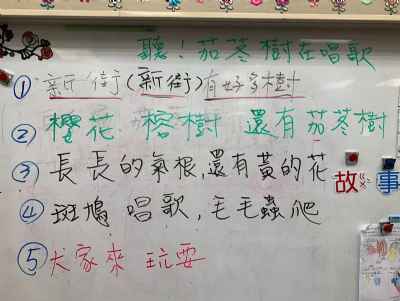 聽！茄苳樹在唱歌
① 新街(新街)有好多樹
② 櫻花 榕樹 還有茄苳樹
③ 長長的氣根,還有黃的花
④ 斑鳩 唱歌,毛毛蟲爬
⑤ 大家來 玩耍
故 事